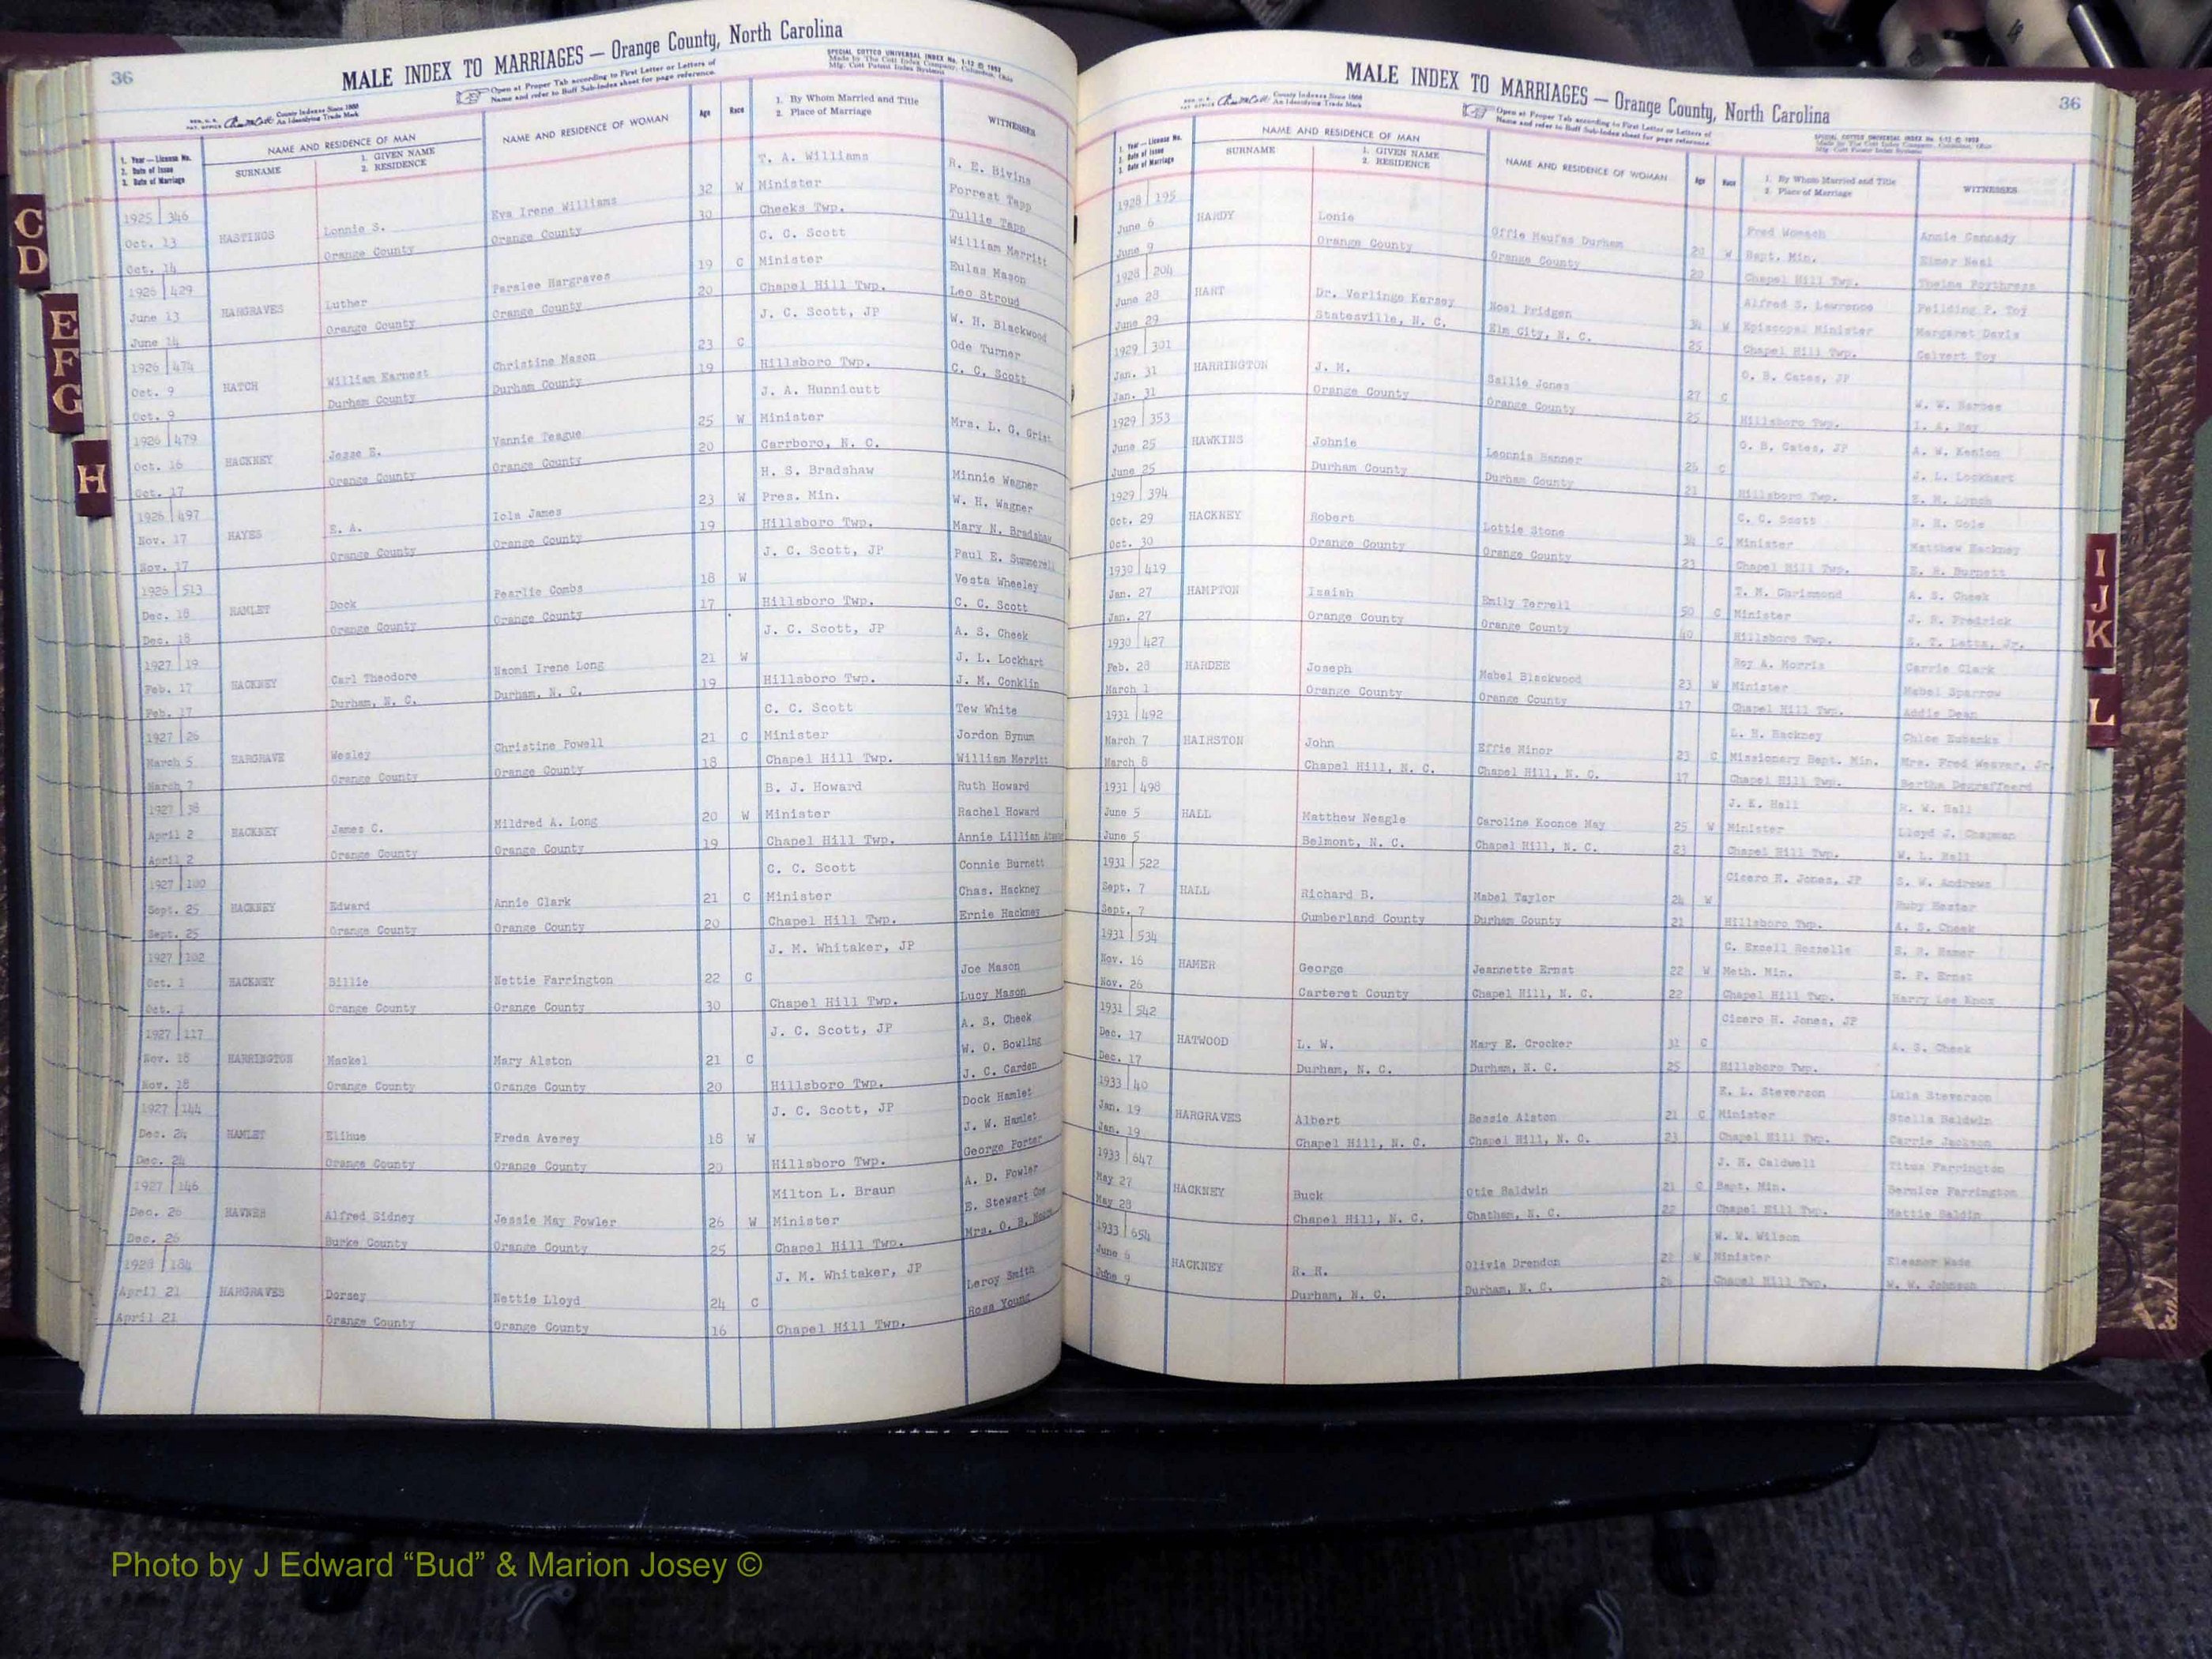 36
MALE INDEX TO MARRIAGES — Orange County, North Carolina
SPECIAL COTTCO UNIVERSAL INDEX No. 1-12 © 1952
Made by The Cott Index Company, Columbus, Ohio
Mfg. Cott Patent Index Systems
County Indexes Since 1888
An Identifying Trade Mark
Open at Proper Tab according to First Letter or Letters of
Name and refer to Buff Sub-Index sheet for page reference.
1. Year — License No.
2. Date of Issue
3. Date of Marriage
NAME AND RESIDENCE OF MAN
SURNAME
1. GIVEN NAME
2. RESIDENCE
NAME AND RESIDENCE OF WOMAN
Age
Race
1. By Whom Married and Title
2. Place of Marriage
WITNESSES
T. A. Williams R. E. Bivins
1925 346 Eva Irene Williams 32 W Minister Forrest Tapp
Oct. 13 HASTINGS Lonnie S. Orange County 30 Cheeks Twp. Tullie Tapp
Oct. 14 Orange County C. C. Scott William Merritt
1926 429 Paralee Hargraves 19 C Minister Eulas Mason
June 13 HARGRAVES Luther Orange County 20 Chapel Hill Twp. Leo Stroud
June 14 Orange County J. C. Scott, JP W. H. Blackwood
1926 474 Christine Mason 23 C Ode Turner
Oct. 9 HATCH William Earnest Durham County 19 Hillsboro Twp. C. C. Scott
Oct. 9 Durham County J. A. Hunnicutt
1926 479 Vannie Teague 25 W Minister Mrs. L. G. Grist
Oct. 16 HACKNEY Jesse E. Orange County 20 Carrboro, N. C.
Oct. 17 Orange County H. S. Bradshaw Minnie Wagner
1926 497 Iola James 23 W Pres. Min. W. H. Wagner
Nov. 17 HAYES E. A. Orange County 19 Hillsboro Twp. Mary N. Bradshaw
Nov. 17 Orange County J. C. Scott, JP Paul E. Summerell
1926 513 Pearlie Combs 18 W Vesta Wheeley
Dec. 18 HAMLET Dock Orange County 17 Hillsboro Twp. C. C. Scott
Dec. 18 Orange County J. C. Scott, JP A. S. Cheek
1927 19 Naomi Irene Long 21 W J. L. Lockhart
Feb. 17 HACKNEY Carl Theodore Durham, N. C. 19 Hillsboro Twp. J. M. Conklin
Feb. 17 Durham, N. C. C. C. Scott Tew White
1927 26 Christine Powell 21 C Minister Jordon Bynum
March 5 HARGRAVE Wesley Orange County 18 Chapel Hill Twp. William Merritt
March 7 Orange County B. J. Howard Ruth Howard
1927 38 Mildred A. Long 20 W Minister Rachel Howard
April 2 HACKNEY James C. Orange County 19 Chapel Hill Twp. Annie Lillian
April 2 Orange County C. C. Scott Connie Burnett
1927 100 Annie Clark 21 C Minister Chas. Hackney
Sept. 25 HACKNEY Edward Orange County 20 Chapel Hill Twp. Ernie Hackney
Sept. 25 Orange County J. M. Whitaker, JP
1927 102 Joe Mason
Oct. 1 HACKNEY Billie Nettie Farrington 22 C Lucy Mason
Oct. 1 Orange County Orange County 30 Chapel Hill Twp.
1927 117 J. C. Scott, JP A. S. Cheek
Nov. 18 HARRINGTON Mackel Mary Alston 21 C W. O. Bowling
Nov. 18 Orange County Orange County 20 Hillsboro Twp. J. C. Carden
1927 144 J. C. Scott, JP Dock Hamlet
Dec. 24 HAMLET Elihue Freda Averey 18 W J. W. Hamlet
Dec. 24 Orange County Orange County 20 Hillsboro Twp. George Porter
1927 146 Milton L. Braun A. D. Fowler
Dec. 26 HAVNER Alfred Sidney Jessie May Fowler 26 W Minister E. Stewart
Dec. 26 Burke County Orange County 25 Chapel Hill Twp. Mrs. O. R.
1928 184 J. M. Whitaker, JP
April 21 HARGRAVES Dorsey Nettie Lloyd 24 C Leroy Smith
April 21 Orange County Orange County 16 Chapel Hill Twp. Rosa Young
36
MALE INDEX TO MARRIAGES — Orange County, North Carolina
County Indexes Since 1888
An Identifying Trade Mark
Open at Proper Tab according to First Letter or Letters of
Name and refer to Buff Sub-Index sheet for page reference.
SPECIAL COTTCO UNIVERSAL INDEX No. 1-12 © 1952
1. Year — License No.
2. Date of Issue
3. Date of Marriage
NAME AND RESIDENCE OF MAN
SURNAME
1. GIVEN NAME
2. RESIDENCE
NAME AND RESIDENCE OF WOMAN
Age
Race
1. By Whom Married and Title
2. Place of Marriage
WITNESSES
1928 195 Fred Womach Annie Cannady
June 6 HARDY Lonie Offie Maufas Durham 20 W Bapt. Min. Elmer Neal
June 9 Orange County Orange County 20 Chapel Hill Twp. Thelma Poythress
1928 204 Alfred S. Lawrence
June 28 HART Dr. Verlings Kersey Noel Pridgen 34 W Episcopal Minister Margaret Davis
June 29 Statesville, N. C. Elm City, N. C. 25 Chapel Hill Twp. Calvert Toy
1929 301 O. B. Cates, JP
Jan. 31 HARRINGTON J. M. Sallie Jones 27 C
Jan. 31 Orange County Orange County 25 Hillsboro Twp. I. A. Ray
1929 353 O. B. Cates, JP A. W. Kenion
June 25 HAWKINS Johnie Leonnis Banner 26 C J. L. Lockhart
June 25 Durham County Durham County 21 Hillsboro Twp. E. M. Lynch
1929 394 C. C. Scott
Oct. 29 HACKNEY Robert Lottie Stone 34 C Minister Matthew Hackney
Oct. 30 Orange County Orange County 23 Chapel Hill Twp. E. H. Burnett
1930 419 T. M. Chrismond A. S. Cheek
Jan. 27 HAMPTON Isaiah Emily Terrell 50 C Minister J. E. Fredrick
Jan. 27 Orange County Orange County 40 Hillsboro Twp. S. T. Latta, Jr.
1930 427 Roy A. Morris Carrie Clark
Feb. 28 HARDEE Joseph Mabel Blackwood 23 W Minister Mabel Sparrow
March 1 Orange County Orange County 17 Chapel Hill Twp. Addie Dean
1931 492 L. H. Hackney Chloe Eubanks
March 7 HAIRSTON John Effie Minor 23 C Missionary Bapt. Min. Mrs. Fred Weaver, Jr.
March 8 Chapel Hill, N. C. Chapel Hill, N. C. 17 Chapel Hill Twp. Bertha Degraffeard
1931 498 J. K. Hall R. W. Hall
June 5 HALL Matthew Neagle Caroline Koonce May 25 W Minister Lloyd J. Chapman
June 5 Belmont, N. C. Chapel Hill, N. C. 23 Chapel Hill Twp. W. L. Hall
1931 522 Cicero H. Jones, JP S. W. Andrews
Sept. 7 HALL Richard B. Mabel Taylor 24 W Ruby Hester
Sept. 7 Cumberland County Durham County 21 Hillsboro Twp. A. S. Cheek
1931 534 C. Excell Rozzelle E. R. Hamer
Nov. 16 HAMER George Jeannette Ernst 22 W Meth. Min. E. P. Ernst
Nov. 26 Carteret County Chapel Hill, N. C. 22 Chapel Hill Twp. Harry Lee Knox
1931 542 Cicero H. Jones, JP
Dec. 17 HATWOOD L. W. Mary E. Crocker 31 C A. S. Cheek
Dec. 17 Durham, N. C. Durham, N. C. 25 Hillsboro Twp.
1933 40 E. L. Steverson Lula Steverson
Jan. 19 HARGRAVES Albert Bessie Alston 21 C Minister Stella Baldwin
Jan. 19 Chapel Hill, N. C. Chapel Hill, N. C. 23 Chapel Hill Twp. Carrie Jackson
1933 647 J. H. Caldwell Titus Farrington
May 27 HACKNEY Buck Otie Baldwin 21 C Bapt. Min. Bernice Farrington
May 28 Chapel Hill, N. C. Chatham, N. C. 22 Chapel Hill Twp. Mattie Baldin
1933 654 W. M. Wilson
June 6 HACKNEY R. R. Olivia Drendon 22 W Minister Eleanor Wade
June 9 Durham, N. C. Durham, N. C. 26 Chapel Hill Twp. W. W. Johnson
C
D
E
F
G
H
I
J
K
L
Photo by J Edward “Bud” & Marion Josey ©